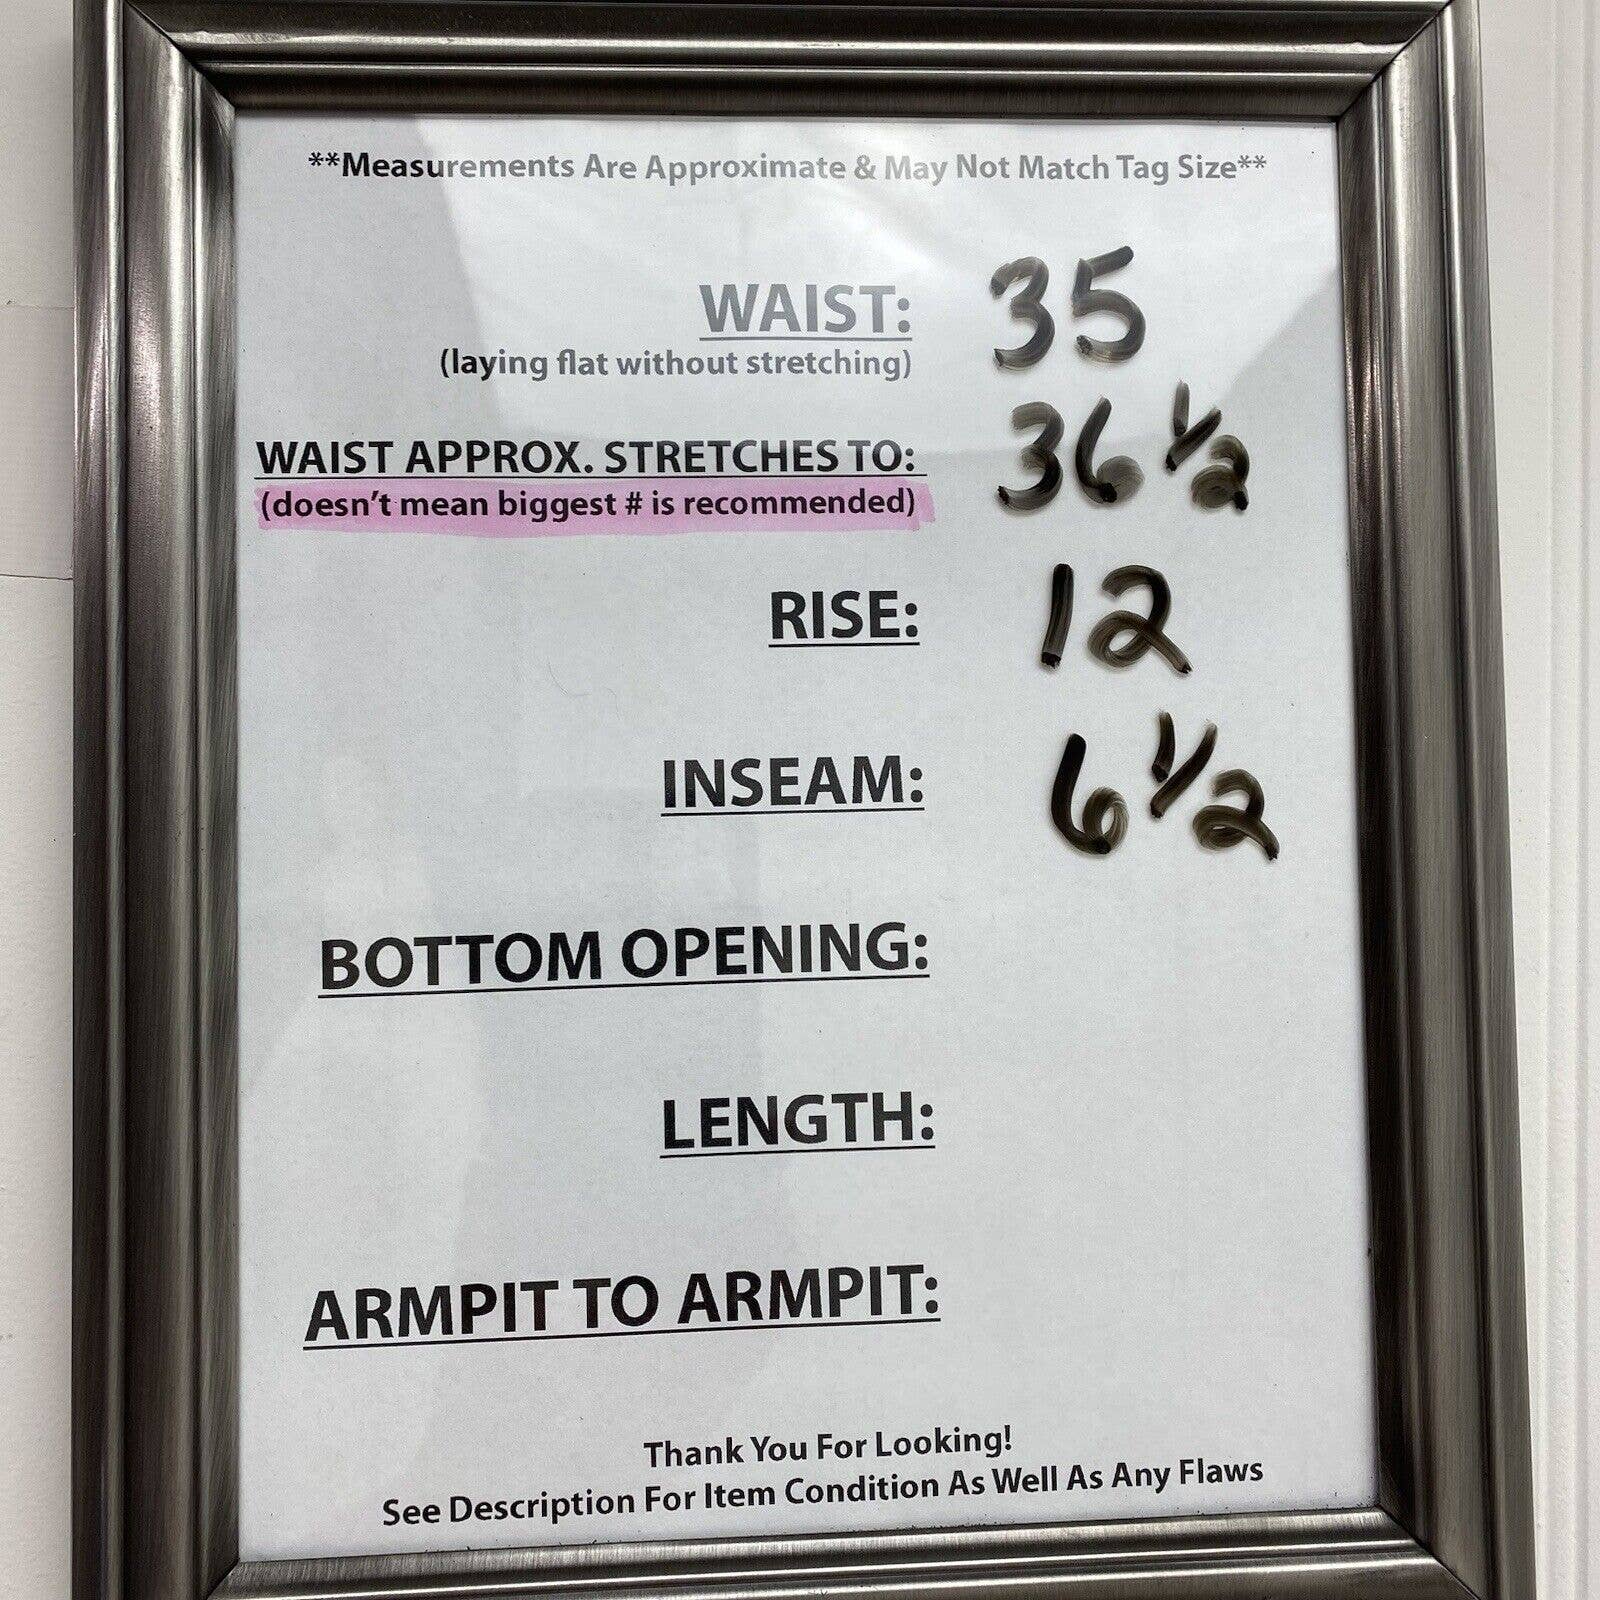 **Measurements Are Approximate & May Not Match Tag Size**
WAIST: 35
(laying flat without stretching)
WAIST APPROX. STRETCHES TO: 36 1/2
(doesn't mean biggest # is recommended)
RISE: 12
INSEAM: 6 1/2
BOTTOM OPENING:
LENGTH:
ARMPIT TO ARMPIT:
Thank You For Looking!
See Description For Item Condition As Well As Any Flaws